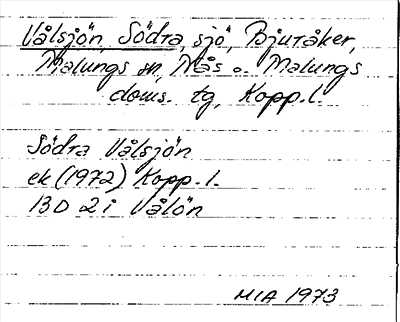 Vålsjön, Södra, sjö, Bjuråker,
Malungs sn, Nås o. Malungs
doms. tg, Kopp.l.
Södra Vålsjön
ek (1972) Kopp. l.
13D 2i Vålön
MIA 1973